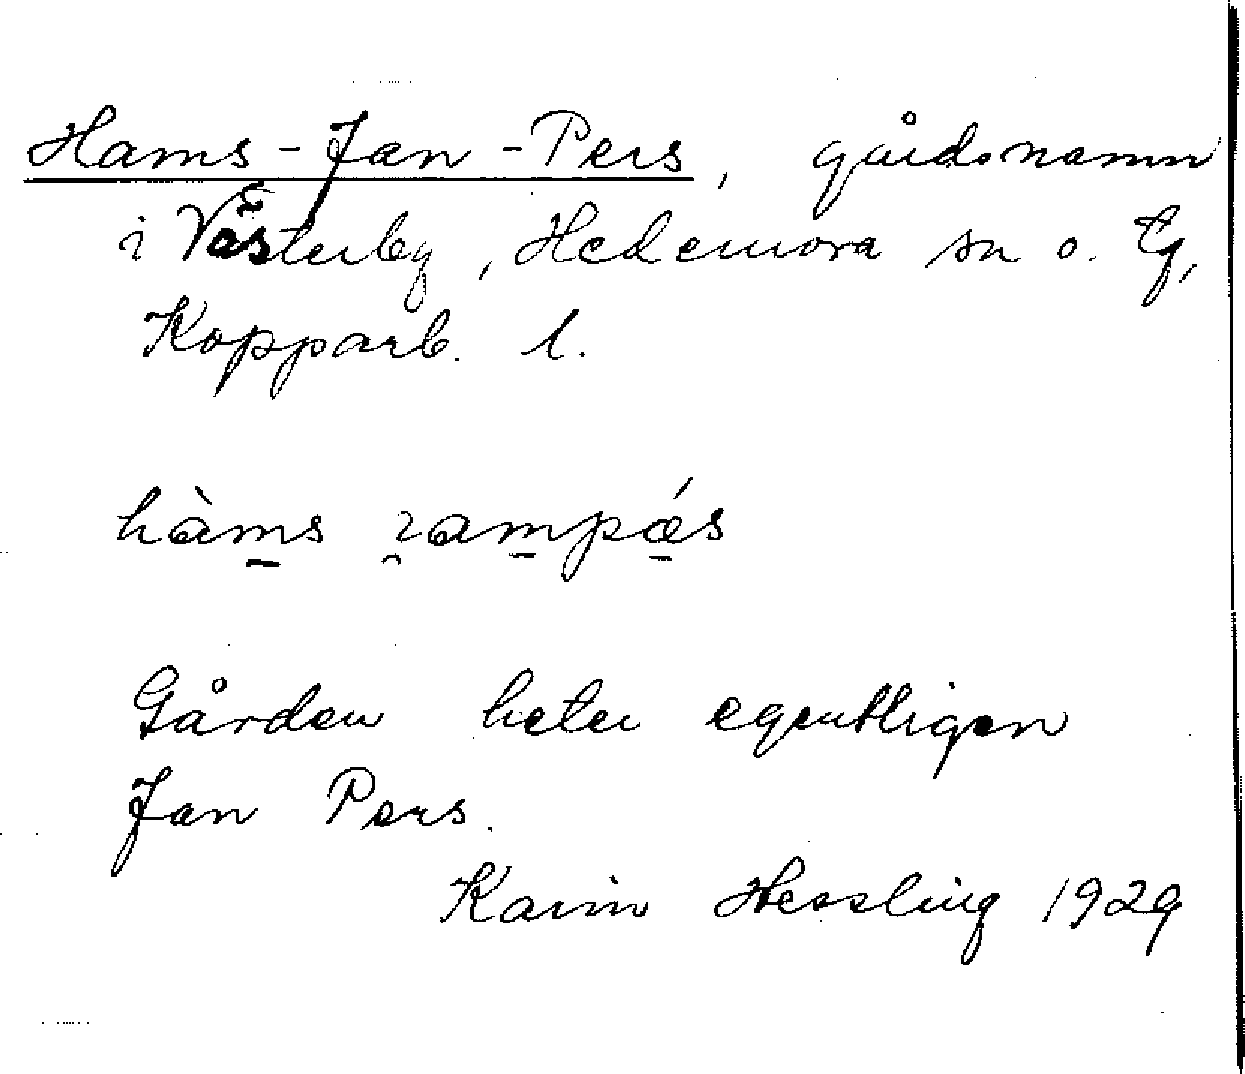 Hams-Jan-Pers, gårdsnamn
i Västerby, Hedemora sn o. tg,
Kopparb. l.
hàms ı̯ampǽs
Gården heter egentligen
Jan Pers.
Karin Hessling 1929